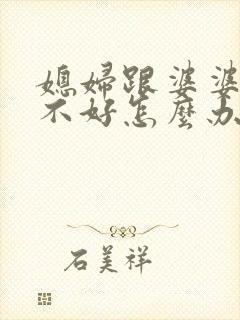 媳婦跟婆婆
不好怎麼办
石美祥